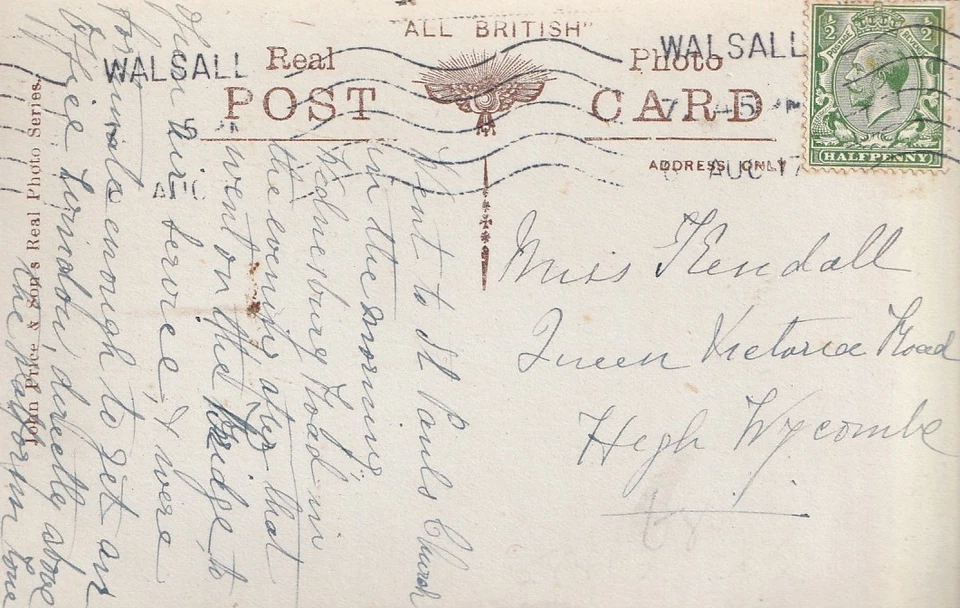 "ALL BRITISH"
Real Photo
POST CARD
WALSALL
WALSALL
5
AUG
7
45
AUG 17
ADDRESS ONLY
HALFPENNY
½ ½
John Price & Son's Real Photo Series.
Miss Kendall
Queen Victoria Road
High Wycombe
Went to St Pauls Church
in the morning
Wednesbury Road in
the evening after that
went on the Bridge to
open air service, & were
fortunate enough to get an
London, directly above
the platform